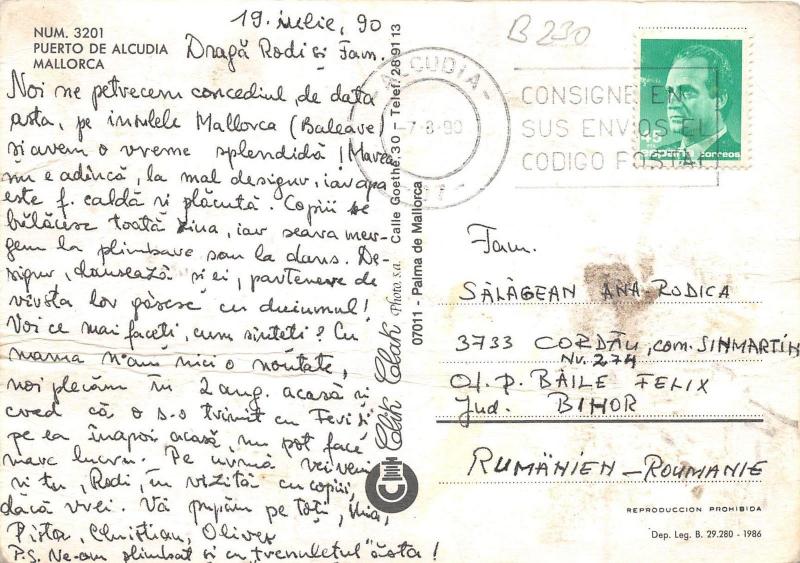 NUM. 3201
PUERTO DE ALCUDIA
MALLORCA
19. iulie, 90
Dragă Rodi și Fam.
Noi ne petrecem concediul, de data
asta, pe insulele Mallorca (Baleare)
și avem o vreme splendidă! Marea
nu e adîncă, la mal desigur, iar apa
este f. caldă și plăcută. Copiii se
bălăcesc toată ziua, iar seara mer-
gem la plimbare sau la dans. De-
sigur, dansează și ei, partenere de
vîrsta lor găsesc cu duiumul!
Voi ce mai faceți, cum sînteți? Cu
mama n-am nici o noutate,
noi plecăm în 2 aug. acasă și
cred că o s-o trimit cu Feri și
pe ea înapoi acasă, nu pot face
marc lucru. Pe urmă vei veni
și tu, Rodi, în vizită cu copiii,
dacă vrei. Vă pupăm pe toți,
Pista, Christian, Oliver
P.S. Ne-am plimbat și cu trenulețul ăsta!
Clak Clak Photo, s.a. Calle Goethe, 30 - Telef. 28 91 13
07011 - Palma de Mallorca
B 230
ALCUDIA
7-8-90
CONSIGNE EN
SUS ENVIOS EL
CODIGO POSTAL
45
PTA
españa correos
Fam.
SĂLĂGEAN ANA RODICA
3733 CORDĂU, com. SINMARTIN
Nr. 274
Of. P. BĂILE FELIX
Jud. BIHOR
RUMÄNIEN - ROUMANIE
REPRODUCCION PROHIBIDA
Dep. Leg. B. 29.280 - 1986